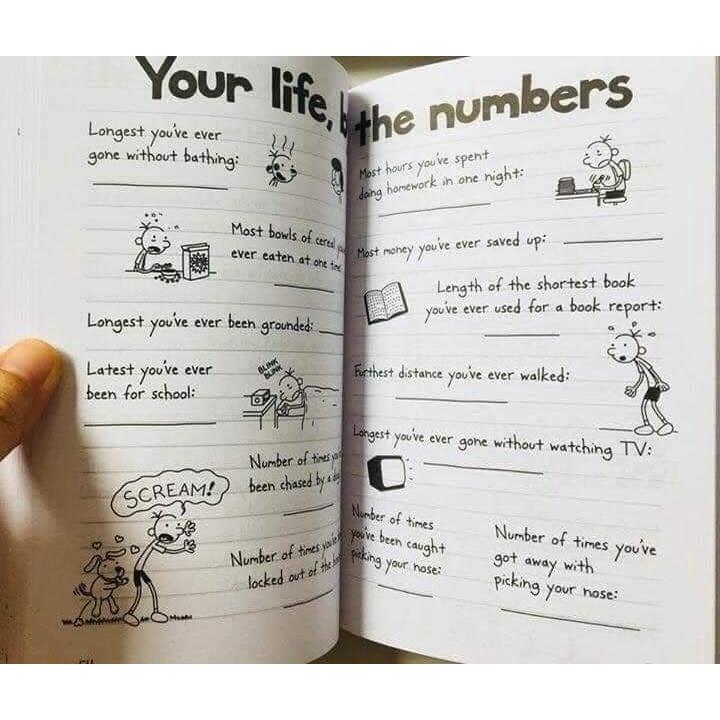 Your life, the numbers
Longest you've ever
gone without bathing:
Most bowls of cereal
ever eaten at one
Longest you've ever been grounded:
Latest you've ever
been for school:
BLINK
BLINK
Number of times
been chased by a
SCREAM!
Number of times
locked out of the
Most hours you've spent
doing homework in one night:
Most money you've ever saved up:
Length of the shortest book
you've ever used for a book report:
Furthest distance you've ever walked:
Longest you've ever gone without watching TV:
Number of times
you've been caught
picking your nose:
Number of times you've
got away with
picking your nose: